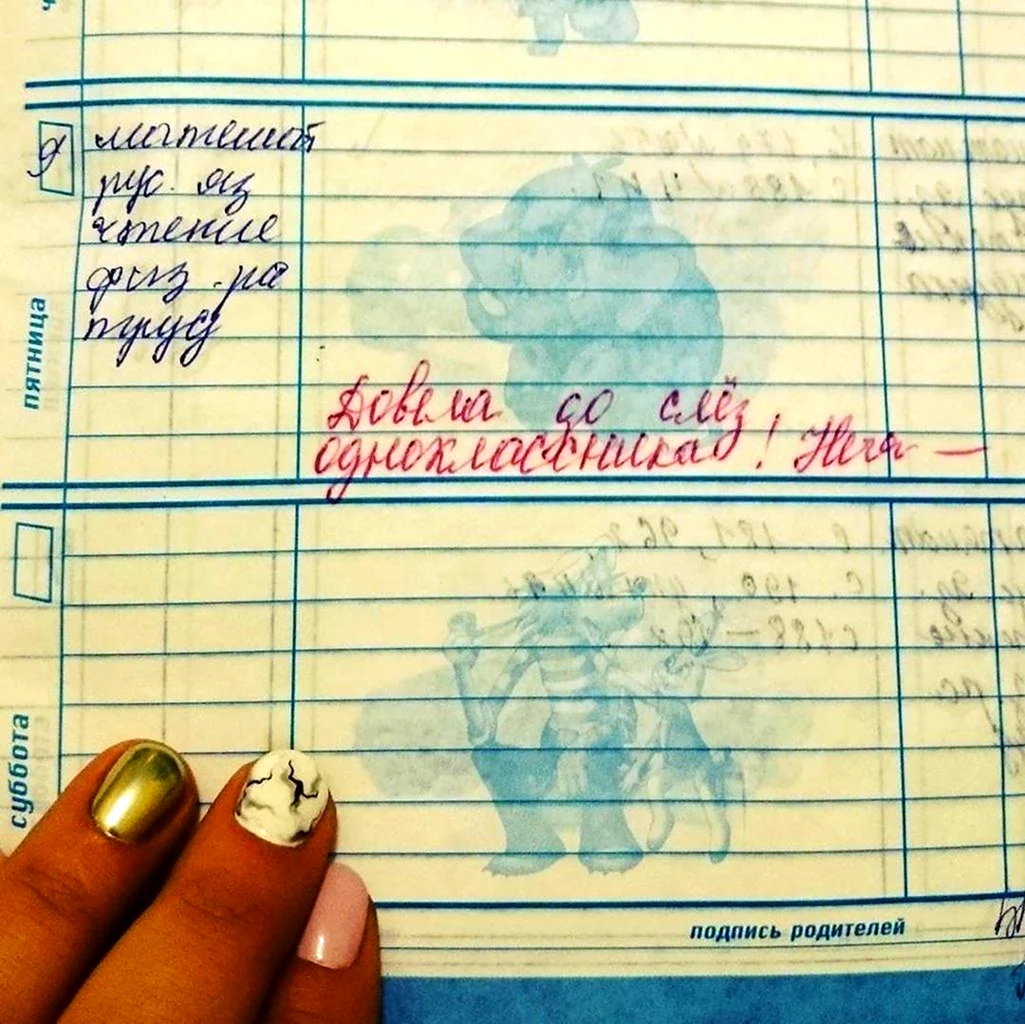 9
математ
рус. яз
чтение
физ-ра
труд
пятница
Довела до слёз
одноклассника!
суббота
подпись родителей